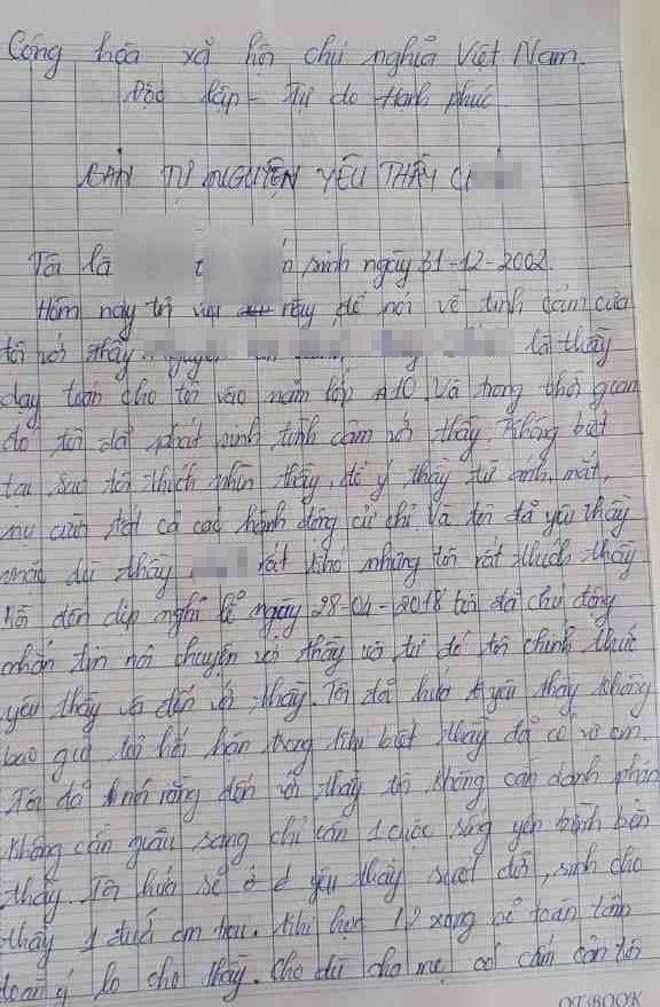 Cộng hòa xã hội chủ nghĩa Việt Nam.
Độc lập - Tự do Hạnh phúc
BẢN TỰ NGUYỆN YÊU THẦY C
Tôi là t n sinh ngày 31-12-2002.
Hôm nay tôi đây để nói về tình cảm của
tôi với thầy là thầy
dạy toán cho tôi vào năm lớp A10. Và trong thời gian
đó tôi đã phát sinh tình cảm với thầy. Không biết
tại sao tôi thích nhìn thầy, để ý thầy từ ánh, mắt,
nụ cười tất cả các hành động cử chỉ. Và tôi đã yêu thầy
mặc dù thầy rất khó nhưng tôi rất thích thầy
đến dịp nghỉ lễ ngày 28-04-2018 tôi đã chủ động
nhắn tin nói chuyện với thầy và từ đó tôi chính thức
yêu thầy và đến với thầy. Tôi đã hứa yêu thầy không
bao giờ tôi hối hận trong khi biết thầy đã có vợ con.
Tôi đã nói rằng đến với thầy tôi không cần danh phận
không cần giàu sang chỉ cần 1 cuộc sống yên bình bên
thầy. Tôi hứa sẽ yêu thầy suốt đời, sinh cho
thầy 1 đứa con trai. Khi học 12 xong sẽ toàn tâm
toàn ý lo cho thầy. Cho dù cha mẹ có cấm cản tôi
OTBOOK